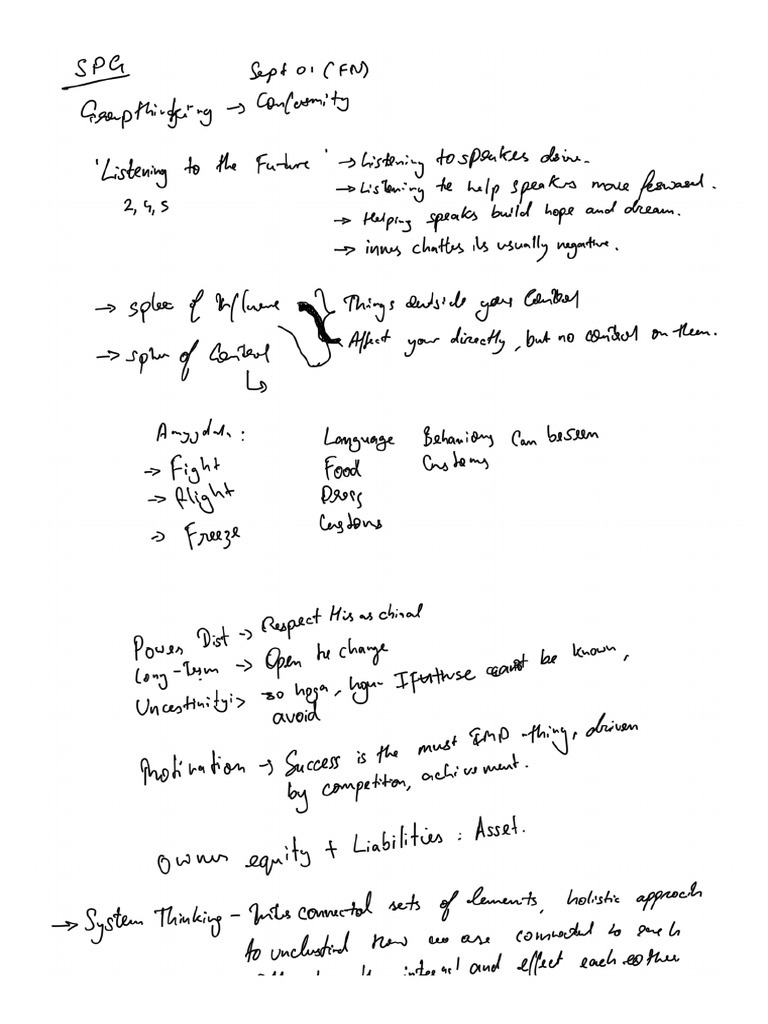 SPG
Sept 01 (FN)
Groupthinking → Conformity
'Listening to the Future' → Listening to speakers desire.
2, 4, 5
→ Listening to help speakers move forward.
→ Helping speaks build hope and dream.
→ inner chatter is usually negative.
→ sphere of Influence
Things outside your Control
Affect your directly, but no control on them.
→ sphere of Control
Amygdala:
→ Fight
→ Flight
→ Freeze
Language
Food
Dress
Customs
Behaviors can be seen
Customs
Power Dist → Respect Hierarchical
Long-Term → Open to change
Uncertinity: → high, future cannot be known,
avoid
Motivation → Success is the must IMP thing, driven
by competition, achivement.
Owner equity + Liabilities : Asset.
→ System Thinking - Inter connected sets of elements, holistic approach
to understand how we are connected to each
and effect each other